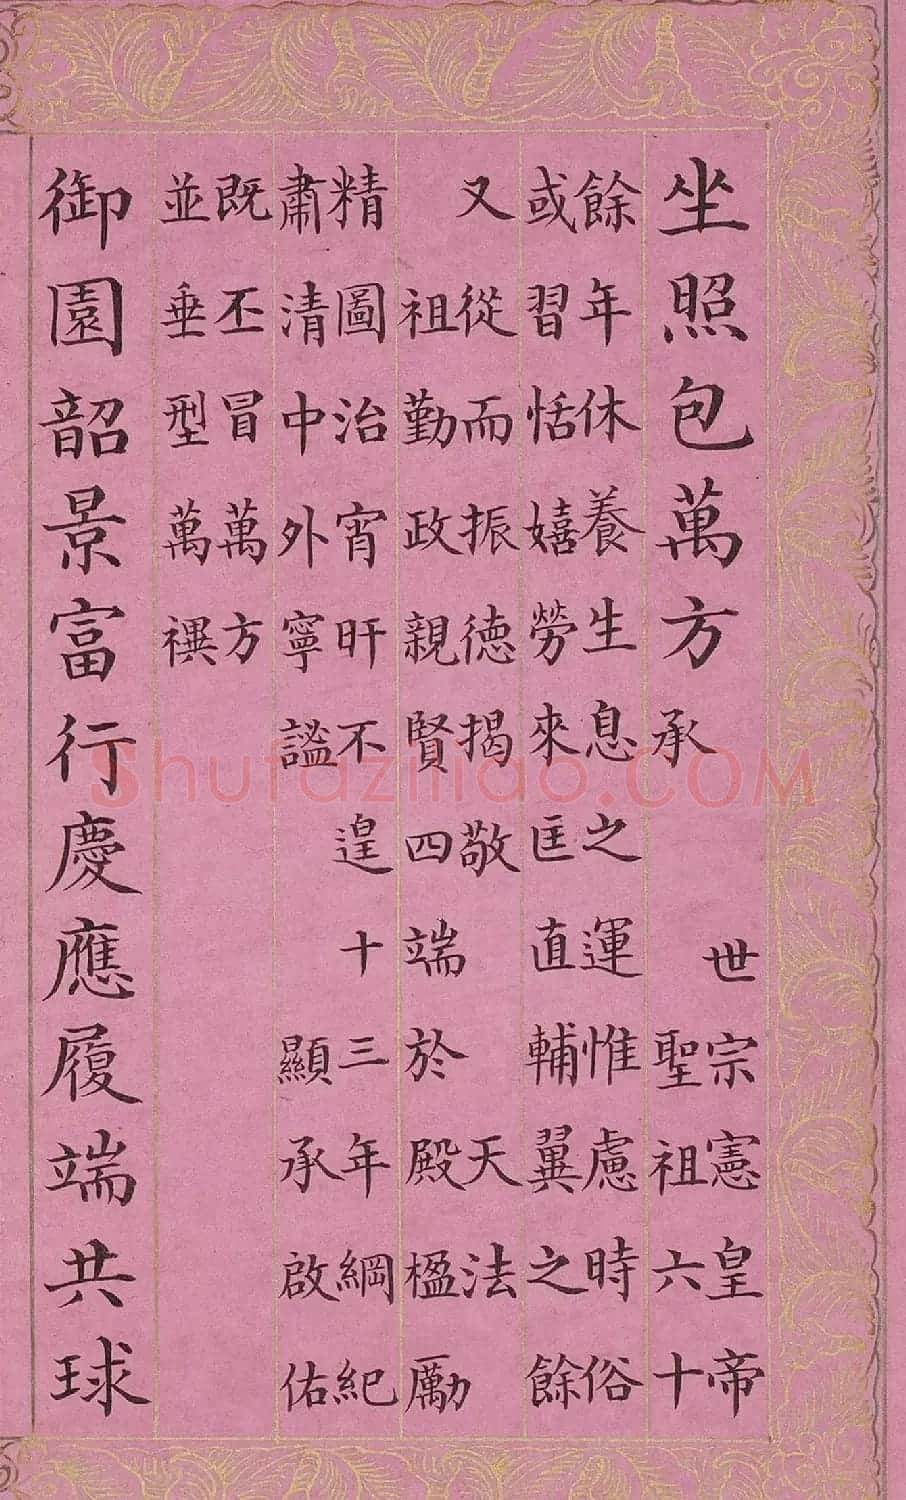 坐照包萬方
世宗憲皇帝
承 聖祖六十
餘年休養生息之運惟慮時俗
或習恬嬉勞來匡直輔翼之餘
又從而振徳揭敬 天法
祖勤政親賢四端於殿楹勵
精圖治宵旰不遑十三年綱紀
肅清中外寧謐 顯承啟佑
既丕冒萬方
並垂型萬禩
御園韶景富行慶應履端共球
Shufaziliao.COM